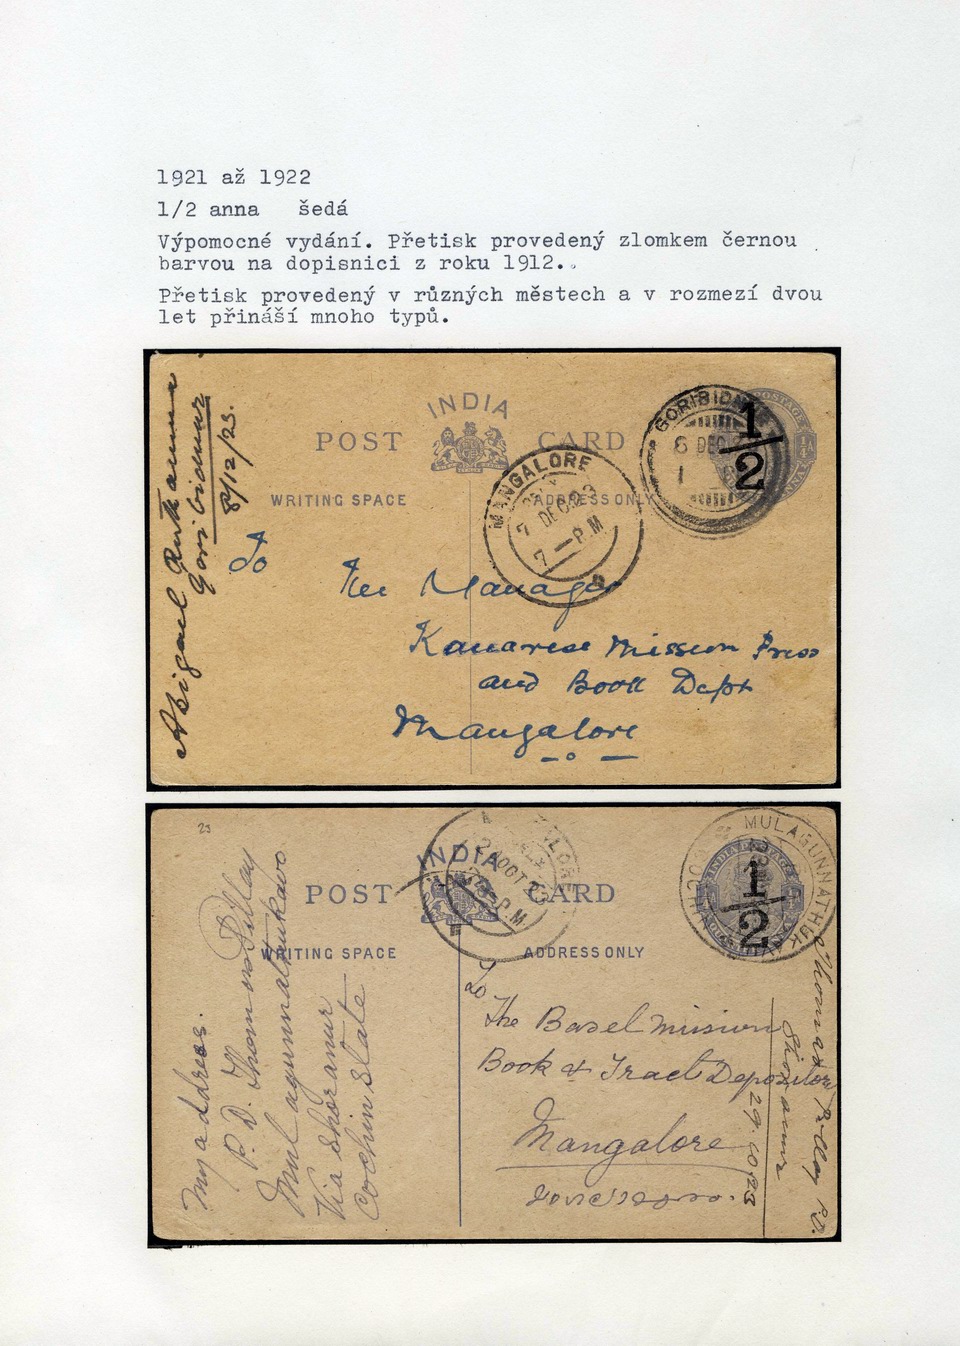 1921 až 1922
1/2 anna šedá
Výpomocné vydání. Přetisk provedený zlomkem černou
barvou na dopisnici z roku 1912.
Přetisk provedený v různých městech a v rozmezí dvou
let přináší mnoho typů.
Abigael Ruthamma
Goribidnur
8/12/23.
INDIA
POST CARD
WRITING SPACE
ADDRESS ONLY
MANGALORE
7 DEC 23
7 — P.M
GORIBIDN
8 DEC
1/2
POSTAGE
To
The Manager
Kanarese Mission Press
and Book Dept
Mangalore
23
INDIA
POST CARD
WRITING SPACE
ADDRESS ONLY
OCT
P.M
MULAGUNNATHUK
INDIA POSTAGE
1/2
My address.
P. D. Thomas Pillay
Mulagunnathukavo
Via Shoranur
Cochin State
To
The Basel Mission
Book & Tract Depository
Mangalore
Thomas Pillay P.D.
Shoranur
29.10.23